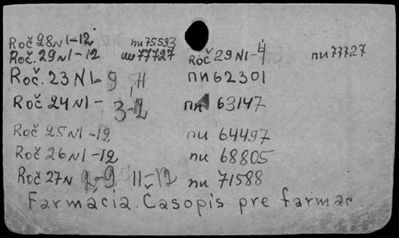 Roč 28 N 1-12 пи 75593
Roč. 29 N 1-12 пи 77727 Roč 29 N 1-4 пи 77727
Roč. 23 N 1-9, 11 пи 62301
Roč 24 N 1- 3-12 пи 63147
Roč 25 N 1-12 пи 64497
Roč 26 N 1-12 пи 68805
Roč 27 N 2-9 11-12 пи 71588
Farmacia. Časopis pre farmac